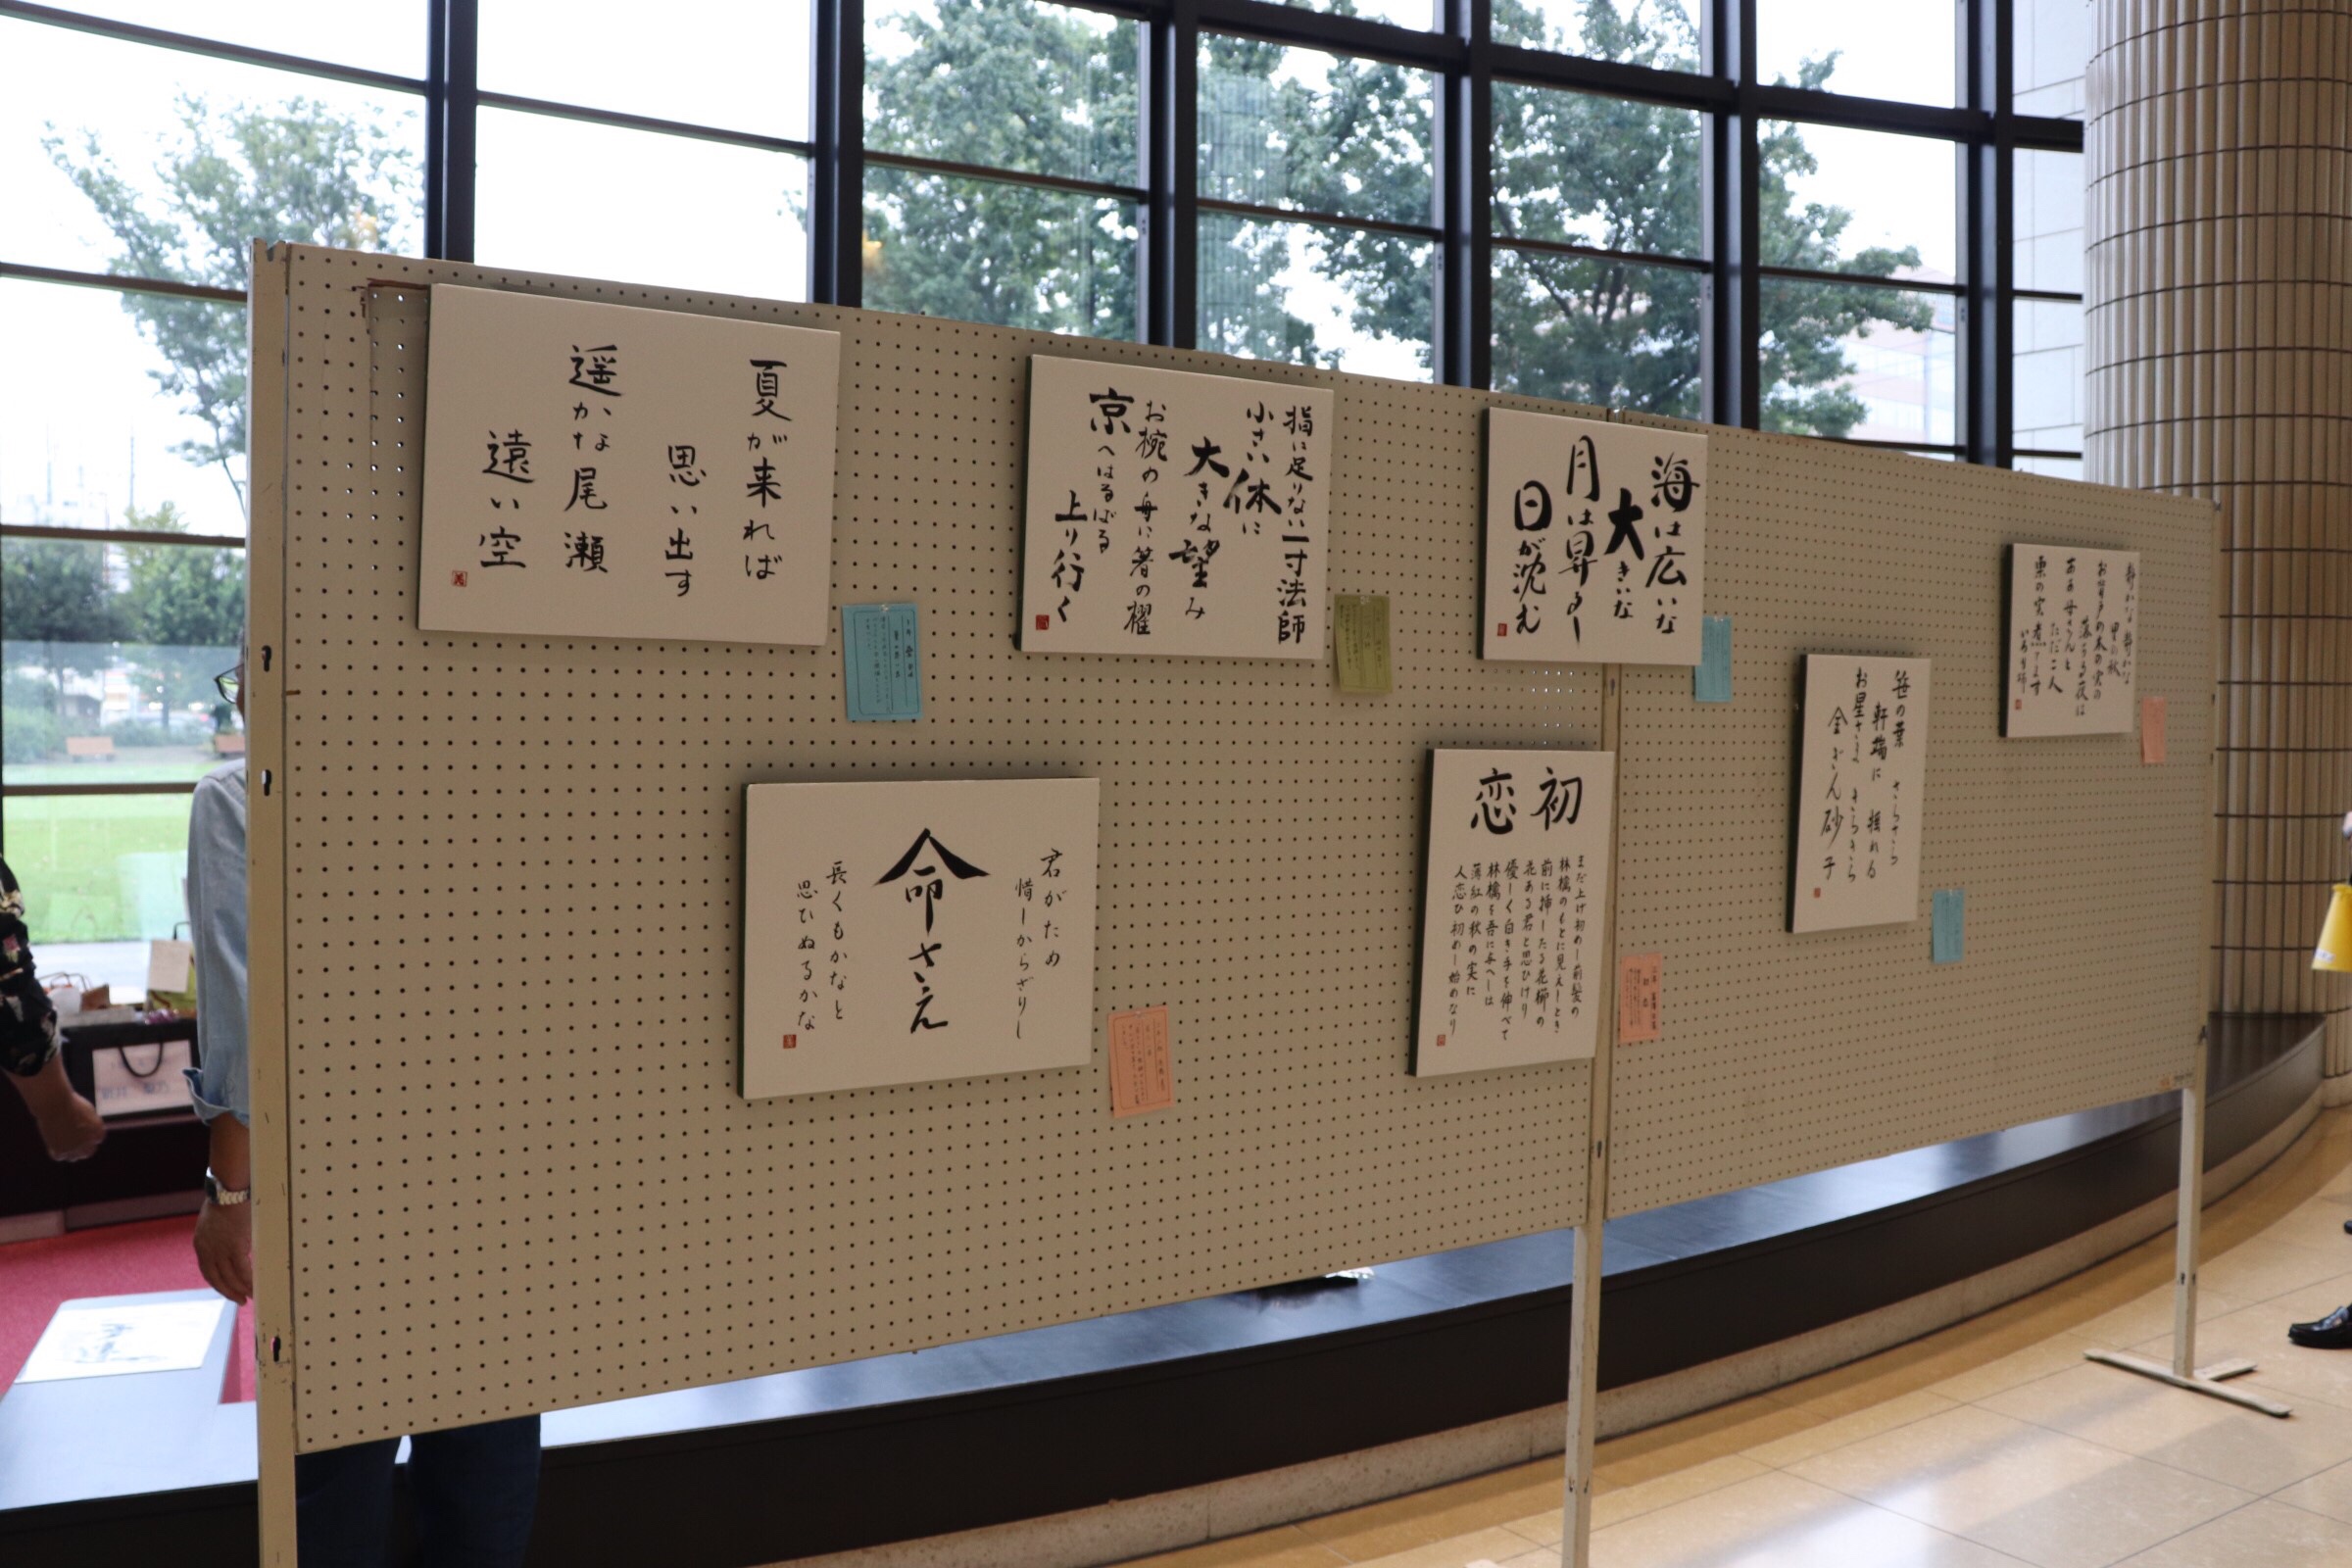 夏が来れば
思い出す
遥かな尾瀬
遠い空
指に足りない一寸法師
小さい体に
大きな望み
お椀の舟に箸の櫂
京へはるばる
上り行く
海は広いな
大きいな
月は昇るし
日が沈む
静かな静かな
里の秋
お背戸に木の実の
落ちる夜は
ああ母さんと
ただ二人
栗の実煮てます
いろり端
君がため
惜しからざりし
命さえ
長くもかなと
思ひぬるかな
初恋
まだ上げ初めし前髪の
林檎のもとに見えしとき
前に挿したる花櫛の
花ある君と思ひけり
優しく白き手を伸べて
林檎を吾に与へしは
薄紅の秋の実に
人恋ひ初めし始めなり
笹の葉 さらさら
軒端に 揺れる
お星さま きらきら
金ぎん砂子